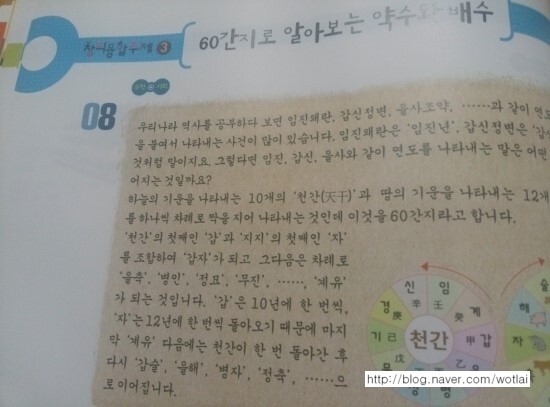 창의융합수학 3
60간지로 알아보는 약수와 배수
수학 역사
08
우리나라 역사를 공부하다 보면 임진왜란, 갑신정변, 을사조약, ……과 같이 연도
을 붙여서 나타내는 사건이 많이 있습니다. 임진왜란은 '임진년', 갑신정변은 '갑신
것처럼 말이지요. 그렇다면 임진, 갑신, 을사와 같이 연도를 나타내는 말은 어떤
어지는 것일까요?
하늘의 기운을 나타내는 10개의 '천간(天干)'과 땅의 기운을 나타내는 12개
를 하나씩 차례로 짝을 지어 나타내는 것인데 이것을 60간지라고 합니다.
'천간'의 첫째인 '갑'과 '지지'의 첫째인 '자'
를 조합하여 '갑자'가 되고 그다음은 차례로
'을축', '병인', '정묘', '무진', ……, '계유'
가 되는 것입니다. '갑'은 10년에 한 번씩,
'자'는 12년에 한 번씩 돌아오기 때문에 마지
막 '계유' 다음에는 천간이 한 번 돌아간 후
다시 '갑술', '을해', '병자', '정축', ……으
로 이어집니다.
신 임
경 庚 辛 壬 癸 계
기 己 천간 甲 갑
무 戊
술
해
자
http://blog.naver.com/wotlai